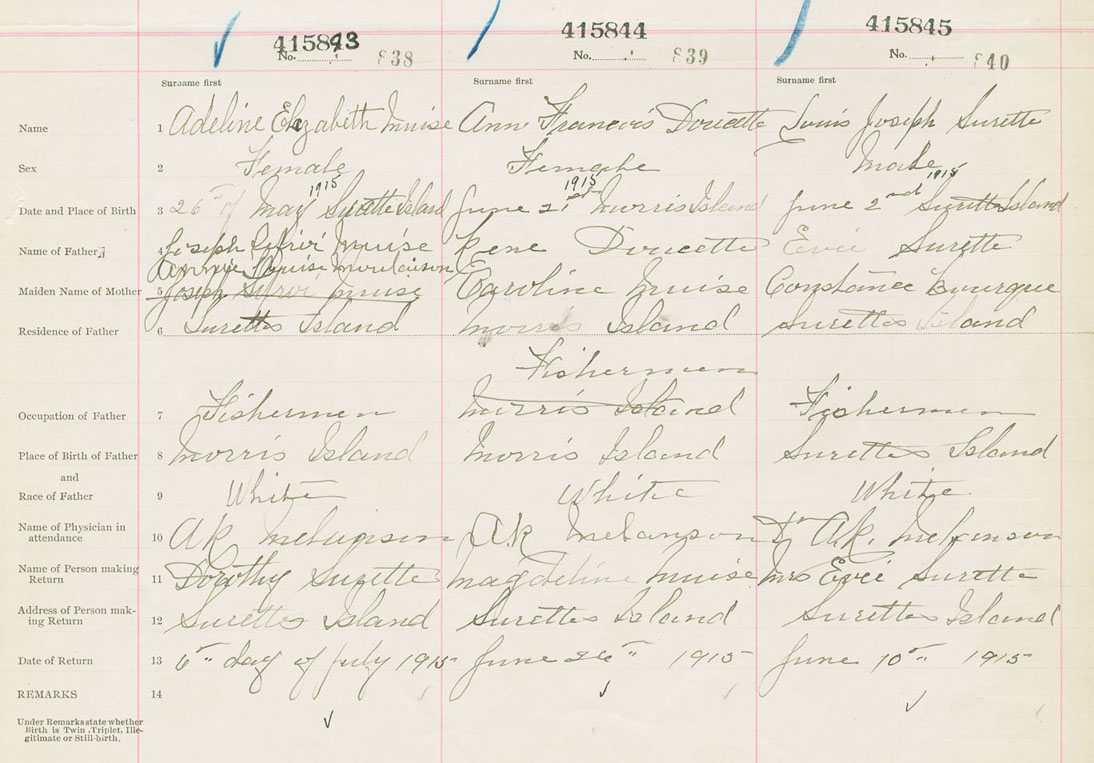 415843 415844 415845
No. 838 No. 839 No. 840
Surname first Surname first Surname first
Name 1 Adeline Elizabeth Muise Ann Francois Doucette Louis Joseph Surette
Sex 2 Female Female Male
1915 1915 1915
Date and Place of Birth 3 26th of May Surette Island June 21st Morris Island June 2nd Surette Island
Name of Father 4 Joseph Muise Rene Doucette Evée Surette
Annie Louise
Maiden Name of Mother 5 Joseph Muise Caroline Muise Constance Bourque
Residence of Father 6 Surettes Island Morris Island Surettes Island
Fishermen
Occupation of Father 7 Fishermen Morris Island Fishermen
Place of Birth of Father 8 Morris Island Morris Island Surettes Island
and
Race of Father 9 White White White
Name of Physician in
attendance 10 AK AK Melanson Dr AK. Melanson
Name of Person making
Return 11 Dorothy Surette Magdeline Muise Mrs Evée Surette
Address of Person mak-
ing Return 12 Surettes Island Surettes Island Surettes Island
Date of Return 13 6th day of July 1915 June 26th 1915 June 10th 1915
REMARKS 14
Under Remarks state whether
Birth is Twin, Triplet, Ille-
gitimate or Still-birth.